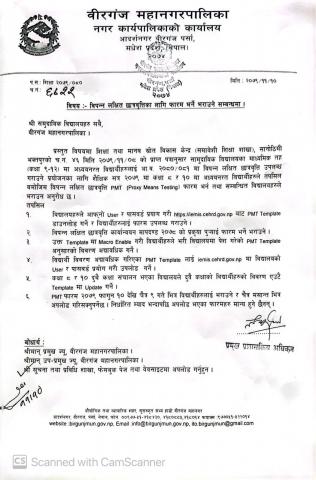 वीरगंज महानगरपालिका
नगर कार्यपालिकाको कार्यालय
आदर्शनगर वीरगंज पर्सा,
मधेश प्रदेश, नेपाल।
२०७४
प.सं: शिक्षा २०७९/०८०
च.नं:
मिति: २०७९/११/१०
विषय :- विपन्न लक्षित छात्रवृत्तिका लागि फारम भर्ने भराउने सम्बन्धमा।
श्री समुदायिक विद्यालयहरु सबै,
वीरगंज महानगरपालिका।
प्रस्तुत विषयमा शिक्षा तथा मानव स्रोत विकास केन्द्र (समावेशी शिक्षा शाखा), सानोठिमी
भक्तपुरको च.नं. ४६ मिति २०७९/११/०८ को प्राप्त पत्रानुसार सामुदायिक विद्यालयका माध्यमिक तह
(कक्षा ९-१२) मा अध्ययनरत विद्यार्थीहरुलाई आ.व. २०८०/०८१ मा विपन्न लक्षित छात्रवृत्ति उपलब्ध
गराउने प्रयोजनका लागि शैक्षिक सत्र २०७९ मा कक्षा ८ र १० मा अध्ययनरत विद्यार्थीहरुले तपसिल
बमोजिम विपन्न लक्षित छात्रवृत्ति PMT (Proxy Means Testing) फारम भर्न तथा सम्बन्धित विद्यालयहरुले
भराउन अनुरोध छ।
तपसिल
१ विद्यालयहरुले आफ्नो User र पासवर्ड प्रयाग गरी https://iemis.cehrd.gov.np बाट PMT Template
डाउनलोड गर्ने र विद्यार्थीहरुलाई फारम उपलब्ध गराउने।
२ विपन्न लक्षित छात्रवृत्ति कार्यान्वयन मापदण्ड २०७८ को प्रकृया पुऱ्याई फारम भर्ने भराउने।
३ उक्त Template मा Macro Enable गरी विद्यार्थीहरुले भरी विद्यालयमा पेश गरेको PMT Template
अनुसारको विवरण अद्यावधिक गर्ने।
४ विद्यार्थी विवरण अद्यावधिक गरिएको PMT Template लाई iemis.cehrd.gov.np मा विद्यालयको
User र पासवर्ड प्रयोग गरी उपलोड गर्ने।
५ कक्षा ८ र १० दुवै कक्षा संचालन भएका विद्यालयले दुवै कक्षाको विद्यार्थीहरुको विवरण एउटै
Template मा Update गर्ने।
६ PMT फारम २०७९ फागुन १० देखि चैत्र ९ गते भित्र विद्यार्थीहरुलाई भराउने र चैत्र मसान्त भित्र
अपलोड गरिसक्नुपर्नेछ। निर्धारित म्याद भन्दापछि अपलोड भएका फारमहरु मान्य हुने छैनन्।
प्रमुख प्रशासकीय अधिकृत
बोधार्थ:
श्रीमान् प्रमुख ज्यु, वीरगंज महानगरपालिका।
श्रीमान् उप-प्रमुख ज्यु, वीरगंज महानगरपालिका।
श्री सूचना तथा प्रविधि शाखा, फेसबुक पेज तथा वेवसाइटमा अपलोड गर्नुहुन।
website:birgunjmun.gov.np, Email :info@birgunjmun.gov.np, ito.birgunjmun@gmail.com
CS Scanned with CamScanner